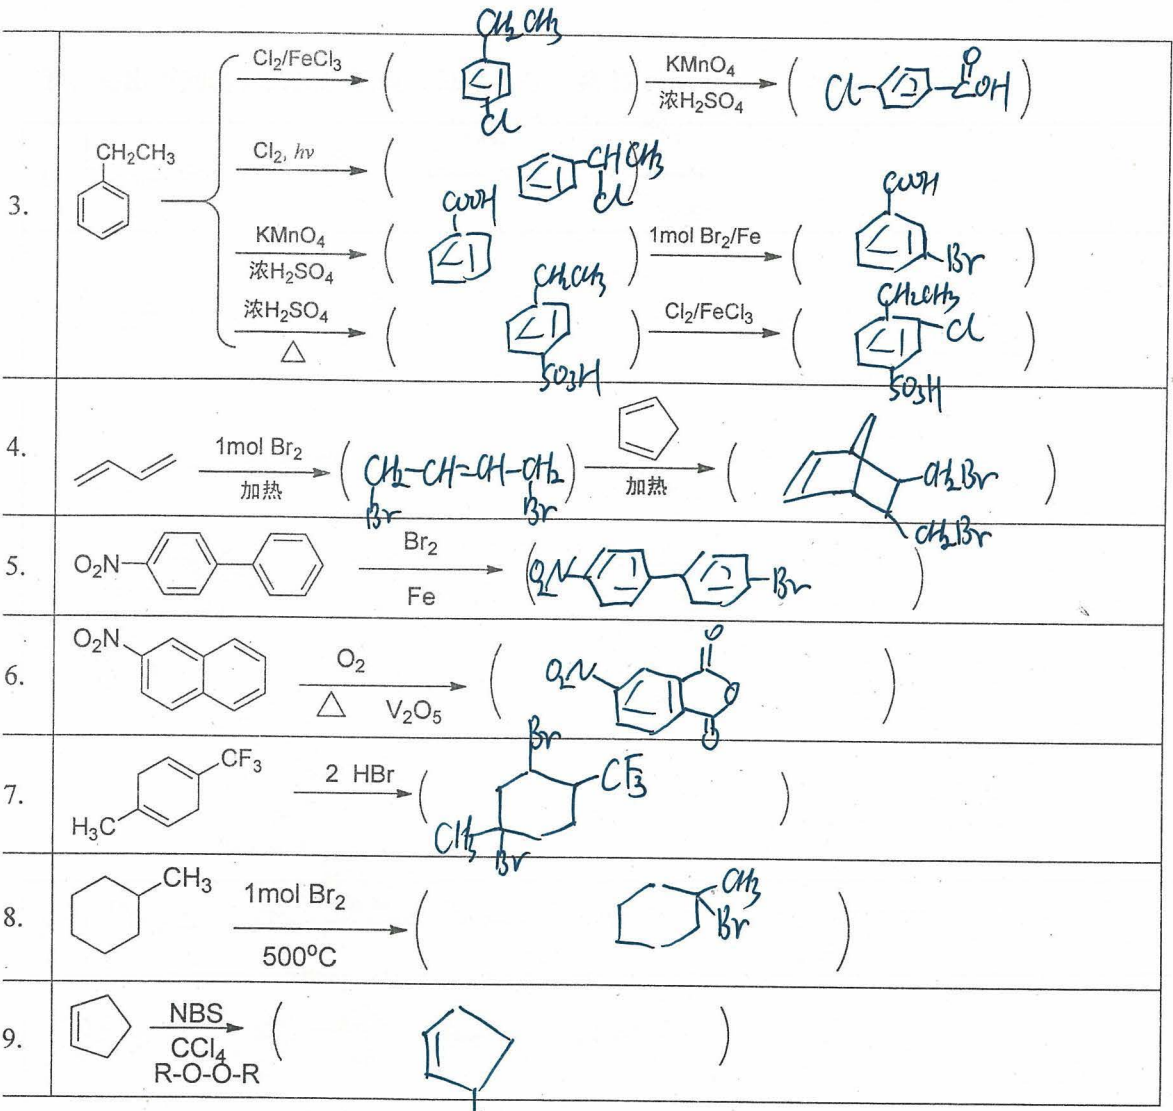 CH₂CH₃
Cl₂/FeCl₃
Cl
KMnO₄
浓H₂SO₄
Cl
COH
O
3.
CH₂CH₃
Cl₂, hν
CHCH₃
Cl
KMnO₄
浓H₂SO₄
COOH
1mol Br₂/Fe
COOH
Br
浓H₂SO₄
△
CH₂CH₃
SO₃H
Cl₂/FeCl₃
CH₂CH₃
Cl
SO₃H
4.
1mol Br₂
加热
CH₂-CH=CH-CH₂
Br Br
加热
CH₂Br
CH₂Br
5.
O₂N
Br₂
Fe
O₂N
Br
6.
O₂N
O₂
△ V₂O₅
O₂N
O
O
O
7.
CF₃
H₃C
2 HBr
Br
CF₃
CH₃
Br
8.
CH₃
1mol Br₂
500°C
CH₃
Br
9.
NBS
CCl₄
R-O-O-R